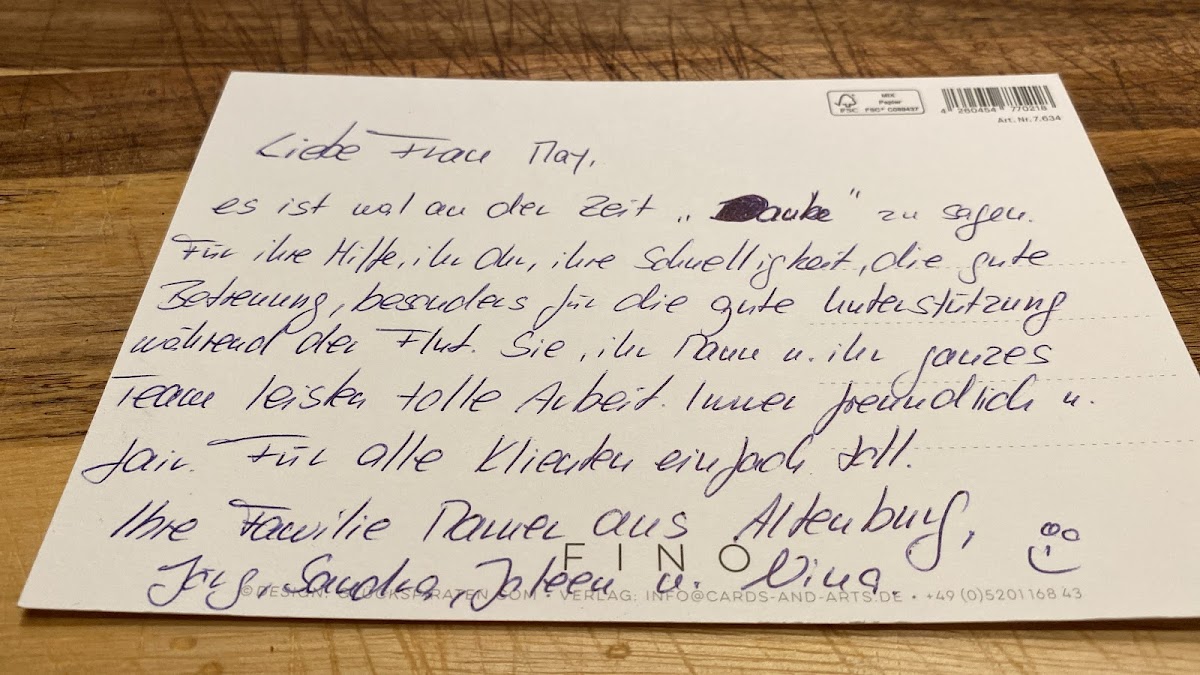 MIX
Papier
FSC
FSC® C089437
4 260454 770218
Art. Nr. 7.634
Liebe Frau May,
es ist mal an der Zeit „Danke" zu sagen.
Für ihre Hilfe, ihr Ohr, ihre Schnelligkeit, die gute
Betreuung, besonders für die gute Unterstützung
während der Flut. Sie, ihr Mann u. ihr ganzes
Team leisten tolle Arbeit. Immer freundlich u.
fair. Für alle Klienten einfach toll.
Ihre Familie aus Altenburg,
FINO
Jörg, Sandra, u. Nina.
© DESIGN: GLÜCKSPIRATEN.COM • VERLAG: INFO@CARDS-AND-ARTS.DE • +49 (0)5201 168 43